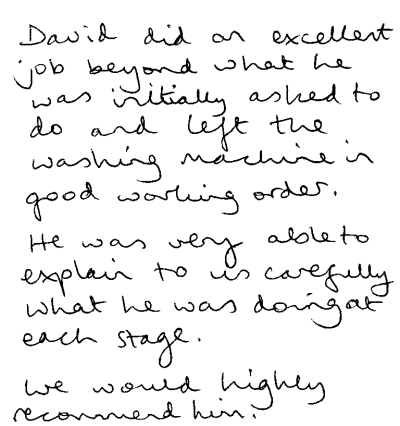 David did an excellent
job beyond what he
was initially asked to
do and left the
washing machine in
good working order.
He was very able to
explain to us carefully
what he was doing at
each stage.
We would highly
recommend him.